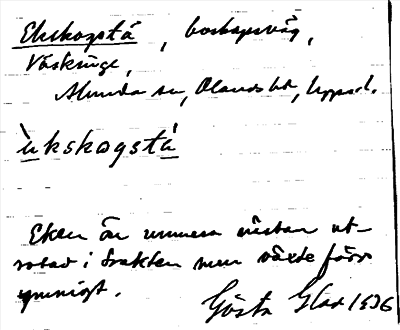 Ekskogstå, boskapsväg,
Väskinge,
Alunda sn, Olands hd, Uppsl.
ùkskogstá
Eken är numera nästan ut-
rotad i trakten men växte förr
ymnigt.
Gösta Glad 1936